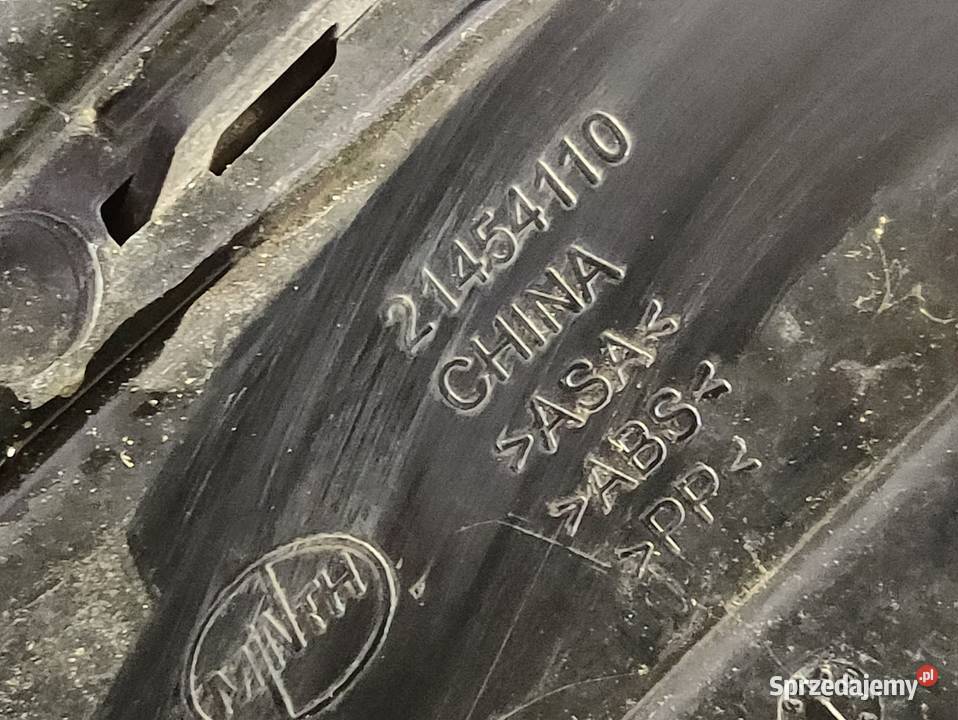 21454110
CHINA
>ASA<
>ABS<
>PP<
MINTH
Sprzedajemy.pl